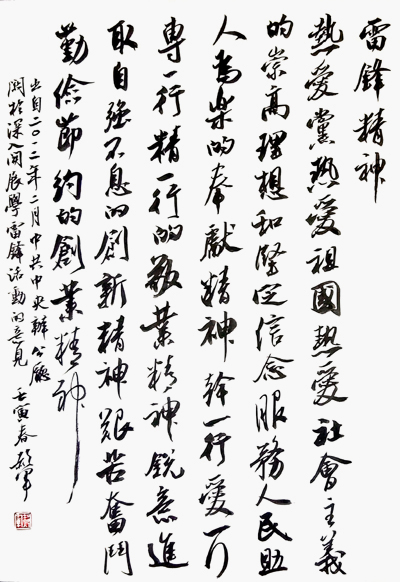 雷鋒精神
熱愛黨熱愛祖國熱愛社會主義
的崇高理想和堅定信念服務人民助
人為樂的奉獻精神幹一行愛一行
專一行精一行的敬業精神銳意進
取自強不息的創新精神艱苦奮鬥
勤儉節約的創業精神
出自二〇一二年二月中共中央辦公廳
關於深入開展學雷鋒活動的意見 壬寅春